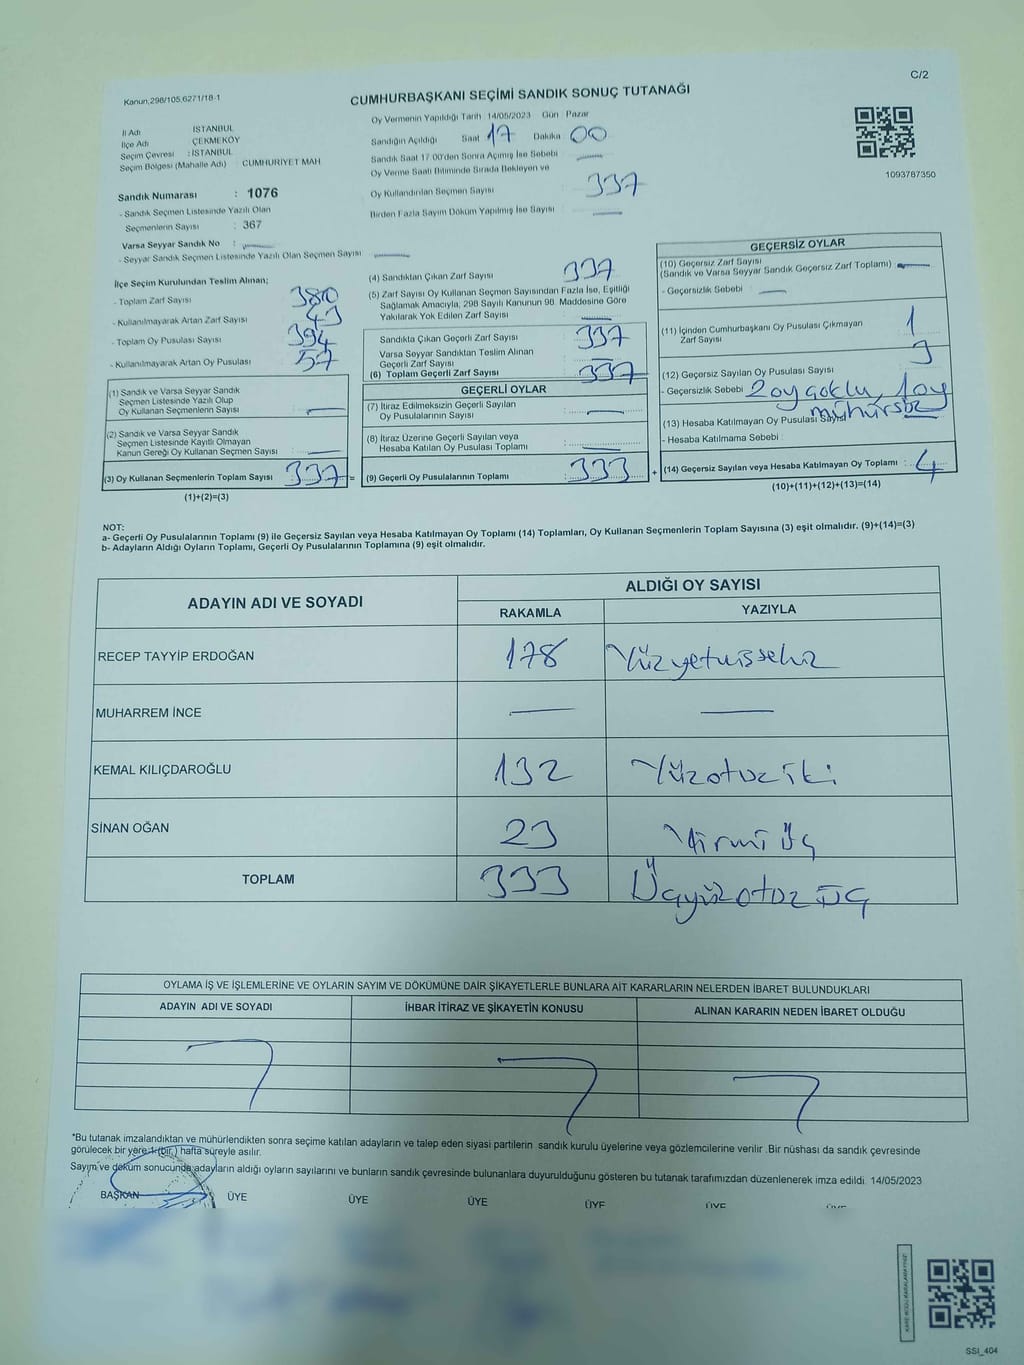 C/2
Kanun,298/105,6271/18-1
CUMHURBAŞKANI SEÇİMİ SANDIK SONUÇ TUTANAĞI
İl Adı İSTANBUL
İlçe Adı ÇEKMEKÖY
Seçim Çevresi : İSTANBUL
Seçim Bölgesi (Mahalle Adı) CUMHURİYET MAH
Sandık Numarası : 1076
- Sandık Seçmen Listesinde Yazılı Olan
Seçmenlerin Sayısı : 367
Varsa Seyyar Sandık No :
- Seyyar Sandık Seçmen Listesinde Yazılı Olan Seçmen Sayısı
Oy Vermenin Yapıldığı Tarih 14/05/2023 Gün Pazar
Sandığın Açıldığı Saat 17 Dakika 00
Sandık Saat 17 00'den Sonra Açımış İse Sebebi
Oy Verme Saati Bitiminde Sırada Bekleyen ve
Oy Kullandırılan Seçmen Sayısı : 337
Birden Fazla Sayım Döküm Yapılmış İse Sayısı
1093787350
İlçe Seçim Kurulundan Teslim Alınan;
- Toplam Zarf Sayısı 380
- Kullanılmayarak Artan Zarf Sayısı 43
- Toplam Oy Pusulası Sayısı 394
- Kullanılmayarak Artan Oy Pusulası 57
(1) Sandık ve Varsa Seyyar Sandık
Seçmen Listesinde Yazılı Olup
Oy Kullanan Seçmenlerin Sayısı :
(2) Sandık ve Varsa Seyyar Sandık
Seçmen Listesinde Kayıtlı Olmayan
Kanun Gereği Oy Kullanan Seçmen Sayısı
(3) Oy Kullanan Seçmenlerin Toplam Sayısı : 337 =
(1)+(2)=(3)
(4) Sandıktan Çıkan Zarf Sayısı 337
(5) Zarf Sayısı Oy Kullanan Seçmen Sayısından Fazla İse, Eşitliği
Sağlamak Amacıyla, 298 Sayılı Kanunun 98. Maddesine Göre
Yakılarak Yok Edilen Zarf Sayısı :
Sandıkta Çıkan Geçerli Zarf Sayısı : 337
Varsa Seyyar Sandıktan Teslim Alınan
Geçerli Zarf Sayısı :
(6) Toplam Geçerli Zarf Sayısı : 337
GEÇERLİ OYLAR
(7) İtiraz Edilmeksizin Geçerli Sayılan
Oy Pusulalarının Sayısı :
(8) İtiraz Üzerine Geçerli Sayılan veya
Hesaba Katılan Oy Pusulası Toplamı :
(9) Geçerli Oy Pusulalarının Toplamı : 333 +
GEÇERSİZ OYLAR
(10) Geçersiz Zarf Sayısı
(Sandık ve Varsa Seyyar Sandık Geçersiz Zarf Toplamı) :
- Geçersizlik Sebebi :
(11) İçinden Cumhurbaşkanı Oy Pusulası Çıkmayan
Zarf Sayısı : 1
(12) Geçersiz Sayılan Oy Pusulası Sayısı : 3
- Geçersizlik Sebebi 2 oy çoklu, 1 oy
mühürsüz
(13) Hesaba Katılmayan Oy Pusulası Sayısı
- Hesaba Katılmama Sebebi :
(14) Geçersiz Sayılan veya Hesaba Katılmayan Oy Toplamı : 4
(10)+(11)+(12)+(13)=(14)
NOT:
a- Geçerli Oy Pusulalarının Toplamı (9) ile Geçersiz Sayılan veya Hesaba Katılmayan Oy Toplamı (14) Toplamları, Oy Kullanan Seçmenlerin Toplam Sayısına (3) eşit olmalıdır. (9)+(14)=(3)
b- Adayların Aldığı Oyların Toplamı, Geçerli Oy Pusulalarının Toplamına (9) eşit olmalıdır.
ADAYIN ADI VE SOYADI ALDIĞI OY SAYISI
RAKAMLA YAZIYLA
RECEP TAYYİP ERDOĞAN 178 Yüzyetmişsekiz
MUHARREM İNCE
KEMAL KILIÇDAROĞLU 132 Yüzotuziki
SİNAN OĞAN 23 Yirmi Üç
TOPLAM 333 Üçyüzotuz üç
OYLAMA İŞ VE İŞLEMLERİNE VE OYLARIN SAYIM VE DÖKÜMÜNE DAİR ŞİKAYETLERLE BUNLARA AİT KARARLARIN NELERDEN İBARET BULUNDUKLARI
ADAYIN ADI VE SOYADI İHBAR İTİRAZ VE ŞİKAYETİN KONUSU ALINAN KARARIN NEDEN İBARET OLDUĞU
*Bu tutanak imzalandıktan ve mühürlendikten sonra seçime katılan adayların ve talep eden siyasi partilerin sandık kurulu üyelerine veya gözlemcilerine verilir .Bir nüshası da sandık çevresinde
görülecek bir yere 1 (bir ) hafta süreyle asılır.
Sayım ve döküm sonucunda adayların aldığı oyların sayılarını ve bunların sandık çevresinde bulunanlara duyurulduğunu gösteren bu tutanak tarafımızdan düzenlenerek imza edildi. 14/05/2023
BAŞKAN ÜYE ÜYE ÜYE ÜYE ÜYE ÜYE
SSİ_404